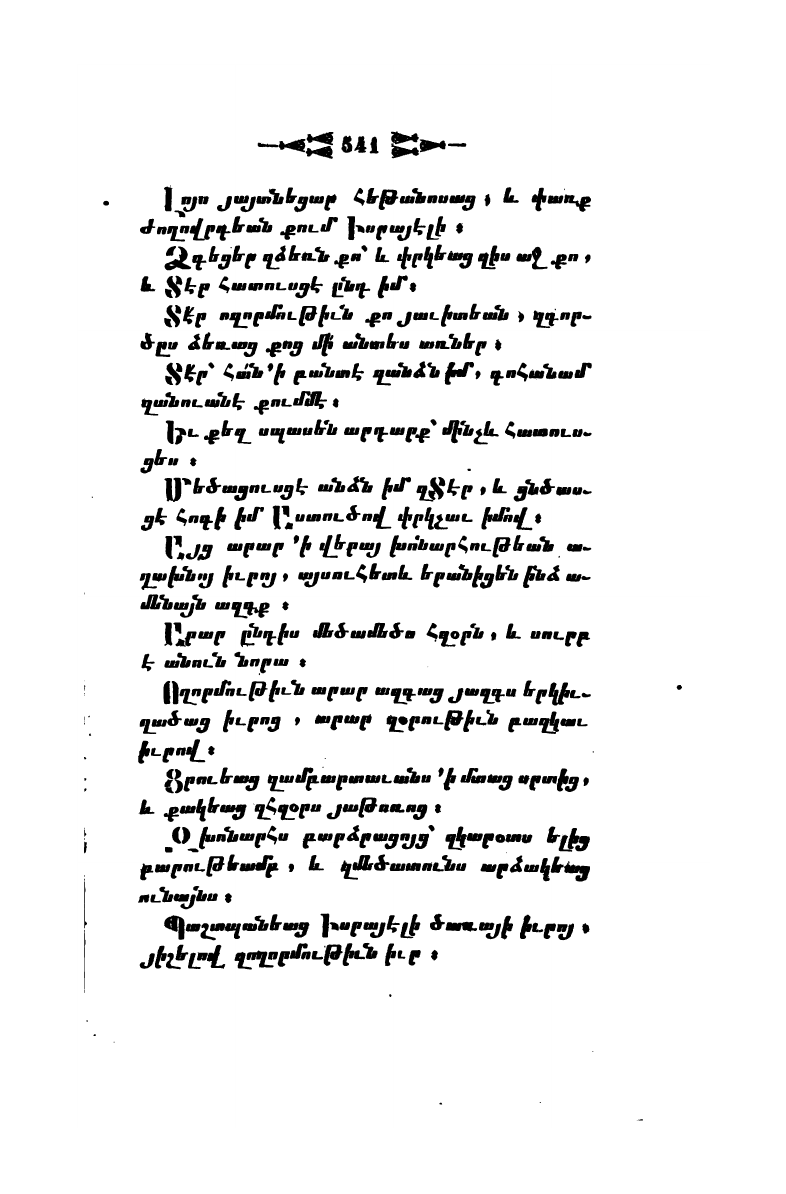 541
Լոյս յայտնեցար հեթանոսաց, և փառք
ժողովրդեան քում Իսրայէլի։
Զգեցեր զձեռն քո՝ և փրկեաց զիս աջ քո,
և Տէր հատուսցէ ընդ իմ։
Տէր ողորմութիւն քո յաւիտեան, զգոր-
ծըս ձեռաց քոց մի՛ անտես առներ։
Տէր՝ հա՛ն ՚ի բանտէ զանձն իմ, գոհանամ
զանուանէ քումմէ։
Եւ քեզ սպասեն արդարք՝ մինչև հատուս-
ցես։
Մեծացուսցէ անձն իմ զՏէր, և ցնծաս-
ցէ հոգի իմ Աստուծով փրկչաւ իմով։
Հայց արար ՚ի վերայ խոնարհութեան ա-
ղախնոյ իւրոյ, այսուհետև երանիցեն ինձ ա-
մենայն ազգք։
Արար ընդիս մեծամեծս հզօրն, և սուրբ
է անուն նորա։
Ողորմութիւն արար ազգաց յազգս երկիւ-
ղածաց իւրոց, արար զօրութիւն բազկաւ
իւրով։
Ցրուեաց զամբարտաւանս ՚ի մտաց սրտից,
և քակեաց զհզօրս յաթոռոց։
Զխոնարհս բարձրացոյց՝ զկարօտս ելից
բարութեամբ, և զմեծատունս արձակեաց
ունայնս։
Պաշտպանեաց Իսրայէլի ծառայի իւրոյ,
յիշելով զողորմութիւն իւր։